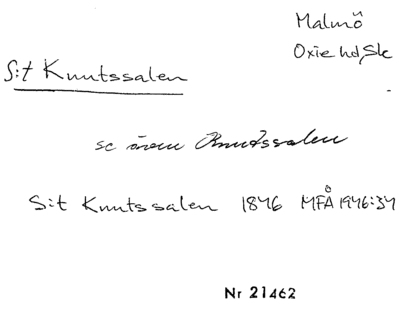 Malmö
Oxie hd, Sk
S:t Knutssalen
se även Knutssalen
S:t Knutssalen 1846 MFÅ 1946:34
Nr 21462